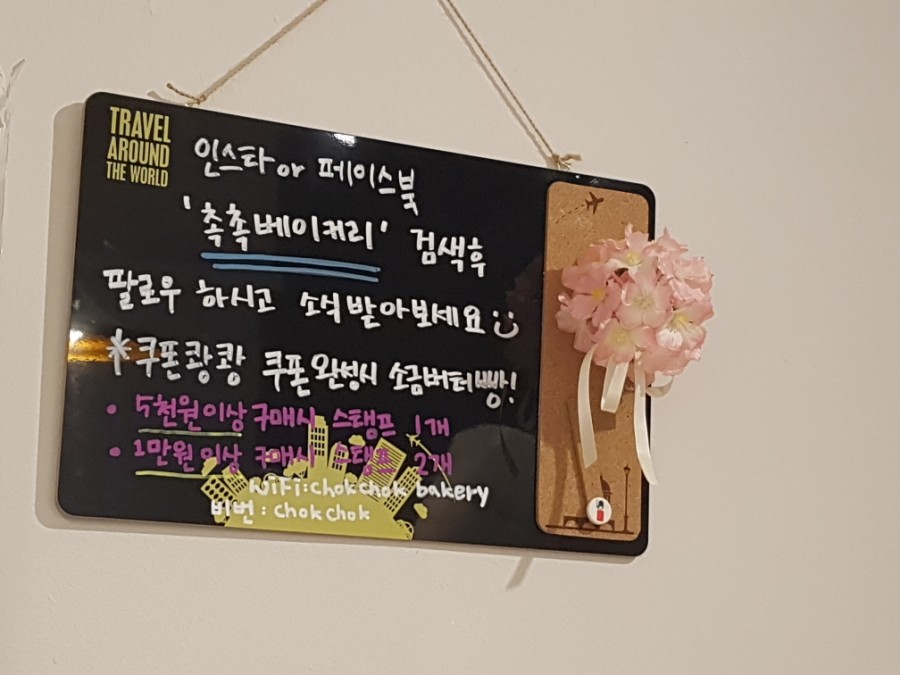 TRAVEL
AROUND
THE WORLD
인스타 or 페이스북
'촉촉베이커리' 검색후
팔로우 하시고 소식 받아보세요
*쿠폰쾅쾅 쿠폰완성시 소금버터빵!
• 5천원이상 구매시 스탬프 1개
• 1만원이상 구매시 스탬프 2개
WiFi:chokchok bakery
비번 : chokchok